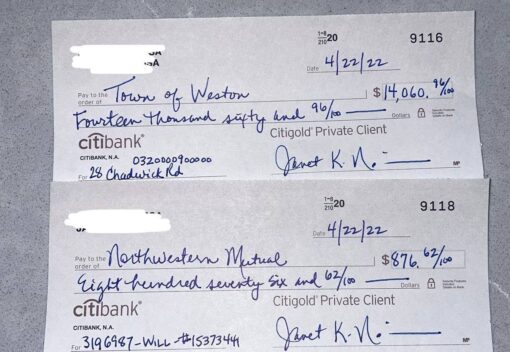 1-8/210 20 9116
4/22/22
Date
Pay to the order of Town of Weston $14,060. 96/100
Fourteen thousand sixty and 96/100 Dollars
citibank® Citigold® Private Client
CITIBANK, N.A. 0320000900000
For 28 Chadwick Rd Janet K. N. MP
1-8/210 20 9118
4/22/22
Date
Pay to the order of Northwestern Mutual $876. 62/100
Eight hundred seventy six and 62/100 Dollars
citibank® Citigold® Private Client
CITIBANK, N.A.
For 3196987-Will-#15373441 Janet K. N. MP